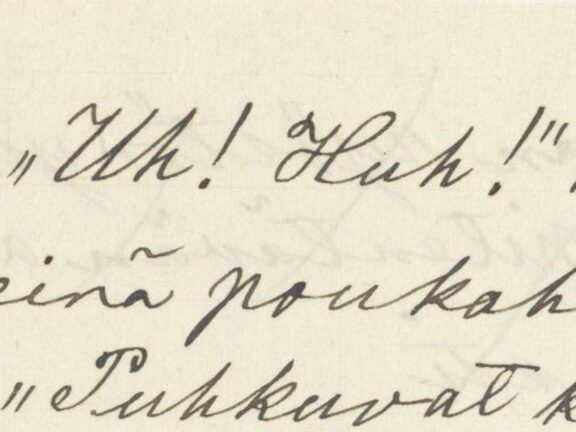 „Uh! Huh!"
einä poukah
„Puhkuvat k